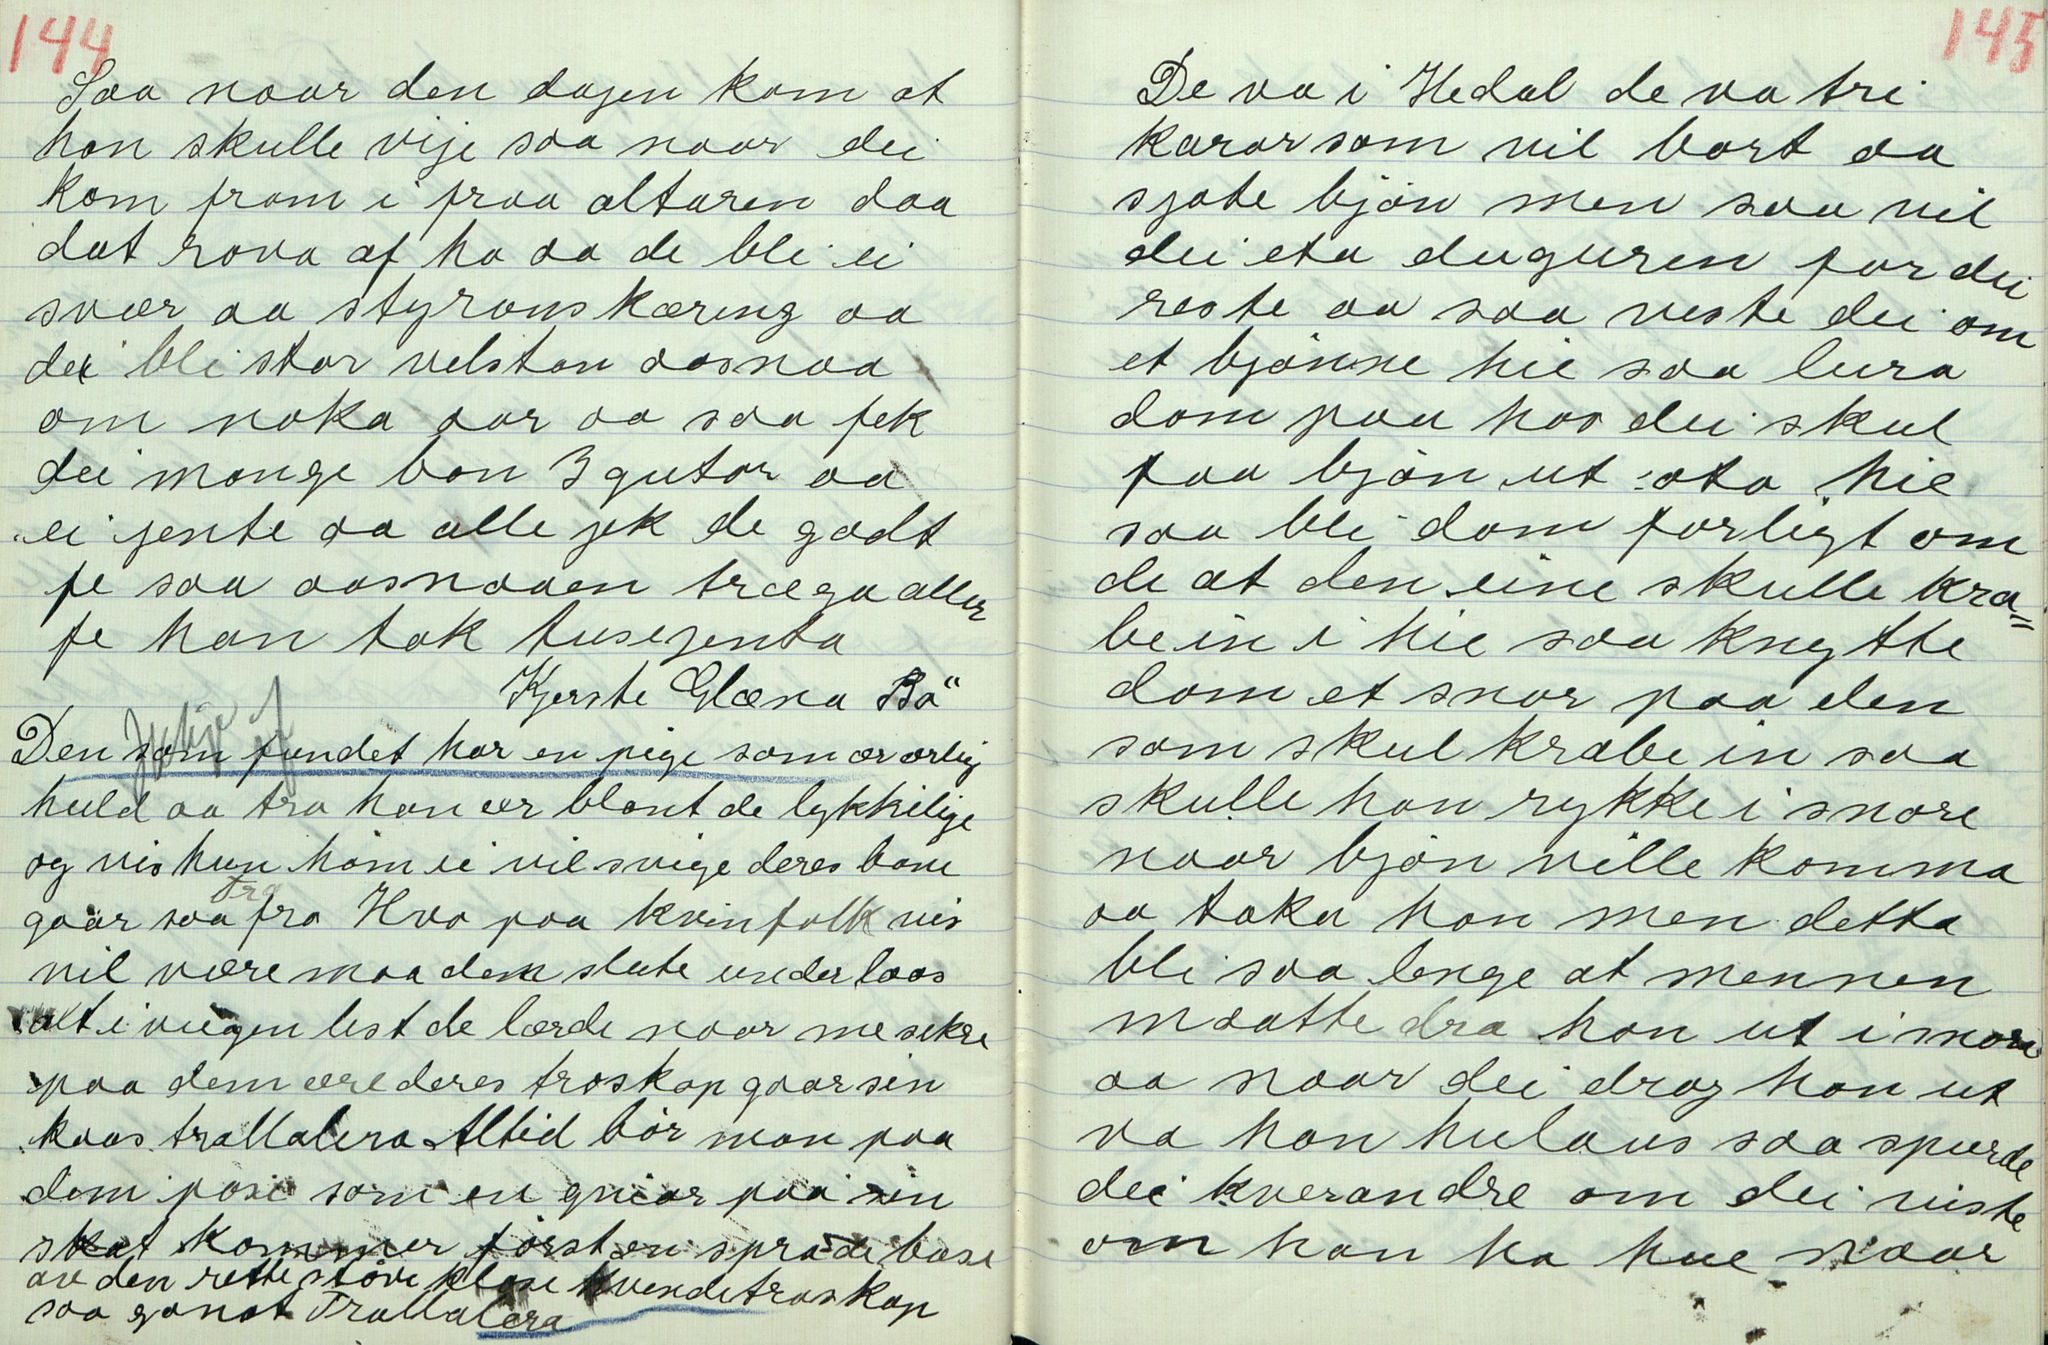 144
Saa naar den dagen kom at
han skulle vije saa naar dei
kom fram i fraa altaren daa
dat rova af ho aa de bli ei
svær aa styranskæring aa
dei bli stor velstan aasnaa
om noka aar aa saa fek
dei mange bon 3 gutar aa
ei jente aa alle jek de godt
fe saa aasnaaen træga aller
fe han tok tusejenta
Kjerste Glæna Bö
Den som fundet har en pige som ær ærlig
huld aa tro han ær blant de lykkelige
og vis hun ham ei vil svige deres bane
gaar saa fra Hva paa kvinfolk vis
vil være maa dem slute under laas
alt i vugen lest de lærde naar me sikre
paa dem ære deres troskap gaar sin
kaas trallalera Altid bör man paa
dem pase som en gniar paa sin
skat kommer först en sprade base
av den rette stöve klase kvendetroskap
saa ganat Trallalera
145
De va i Hedal de va tri
karar som vil bort aa
sjote bjön men saa vil
dei eta duguren för dei
reste aa saa veste dei om
et bjönne hie saa lura
dom paa hos dei skul
faa bjön ut ata hie
saa bli dom forligt om
de at den eine skulle kra=
be in i hie saa knytte
dom et snor paa den
som skul krabe in saa
skulle han rykke i snore
naar bjön ville komma
aa taka han men detta
bli saa lenge at mennen
maatte dra han ut i snora
aa naar dei drog han ut
va han hulaus saa spurde
dei kverandre om dei viste
om han ha hue naar